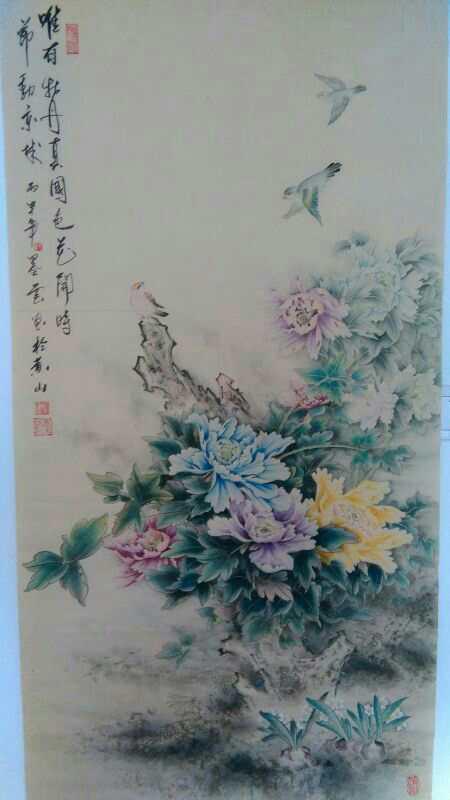 唯有牡丹真國色花開時
節動京城丙申年墨雲写於黄山